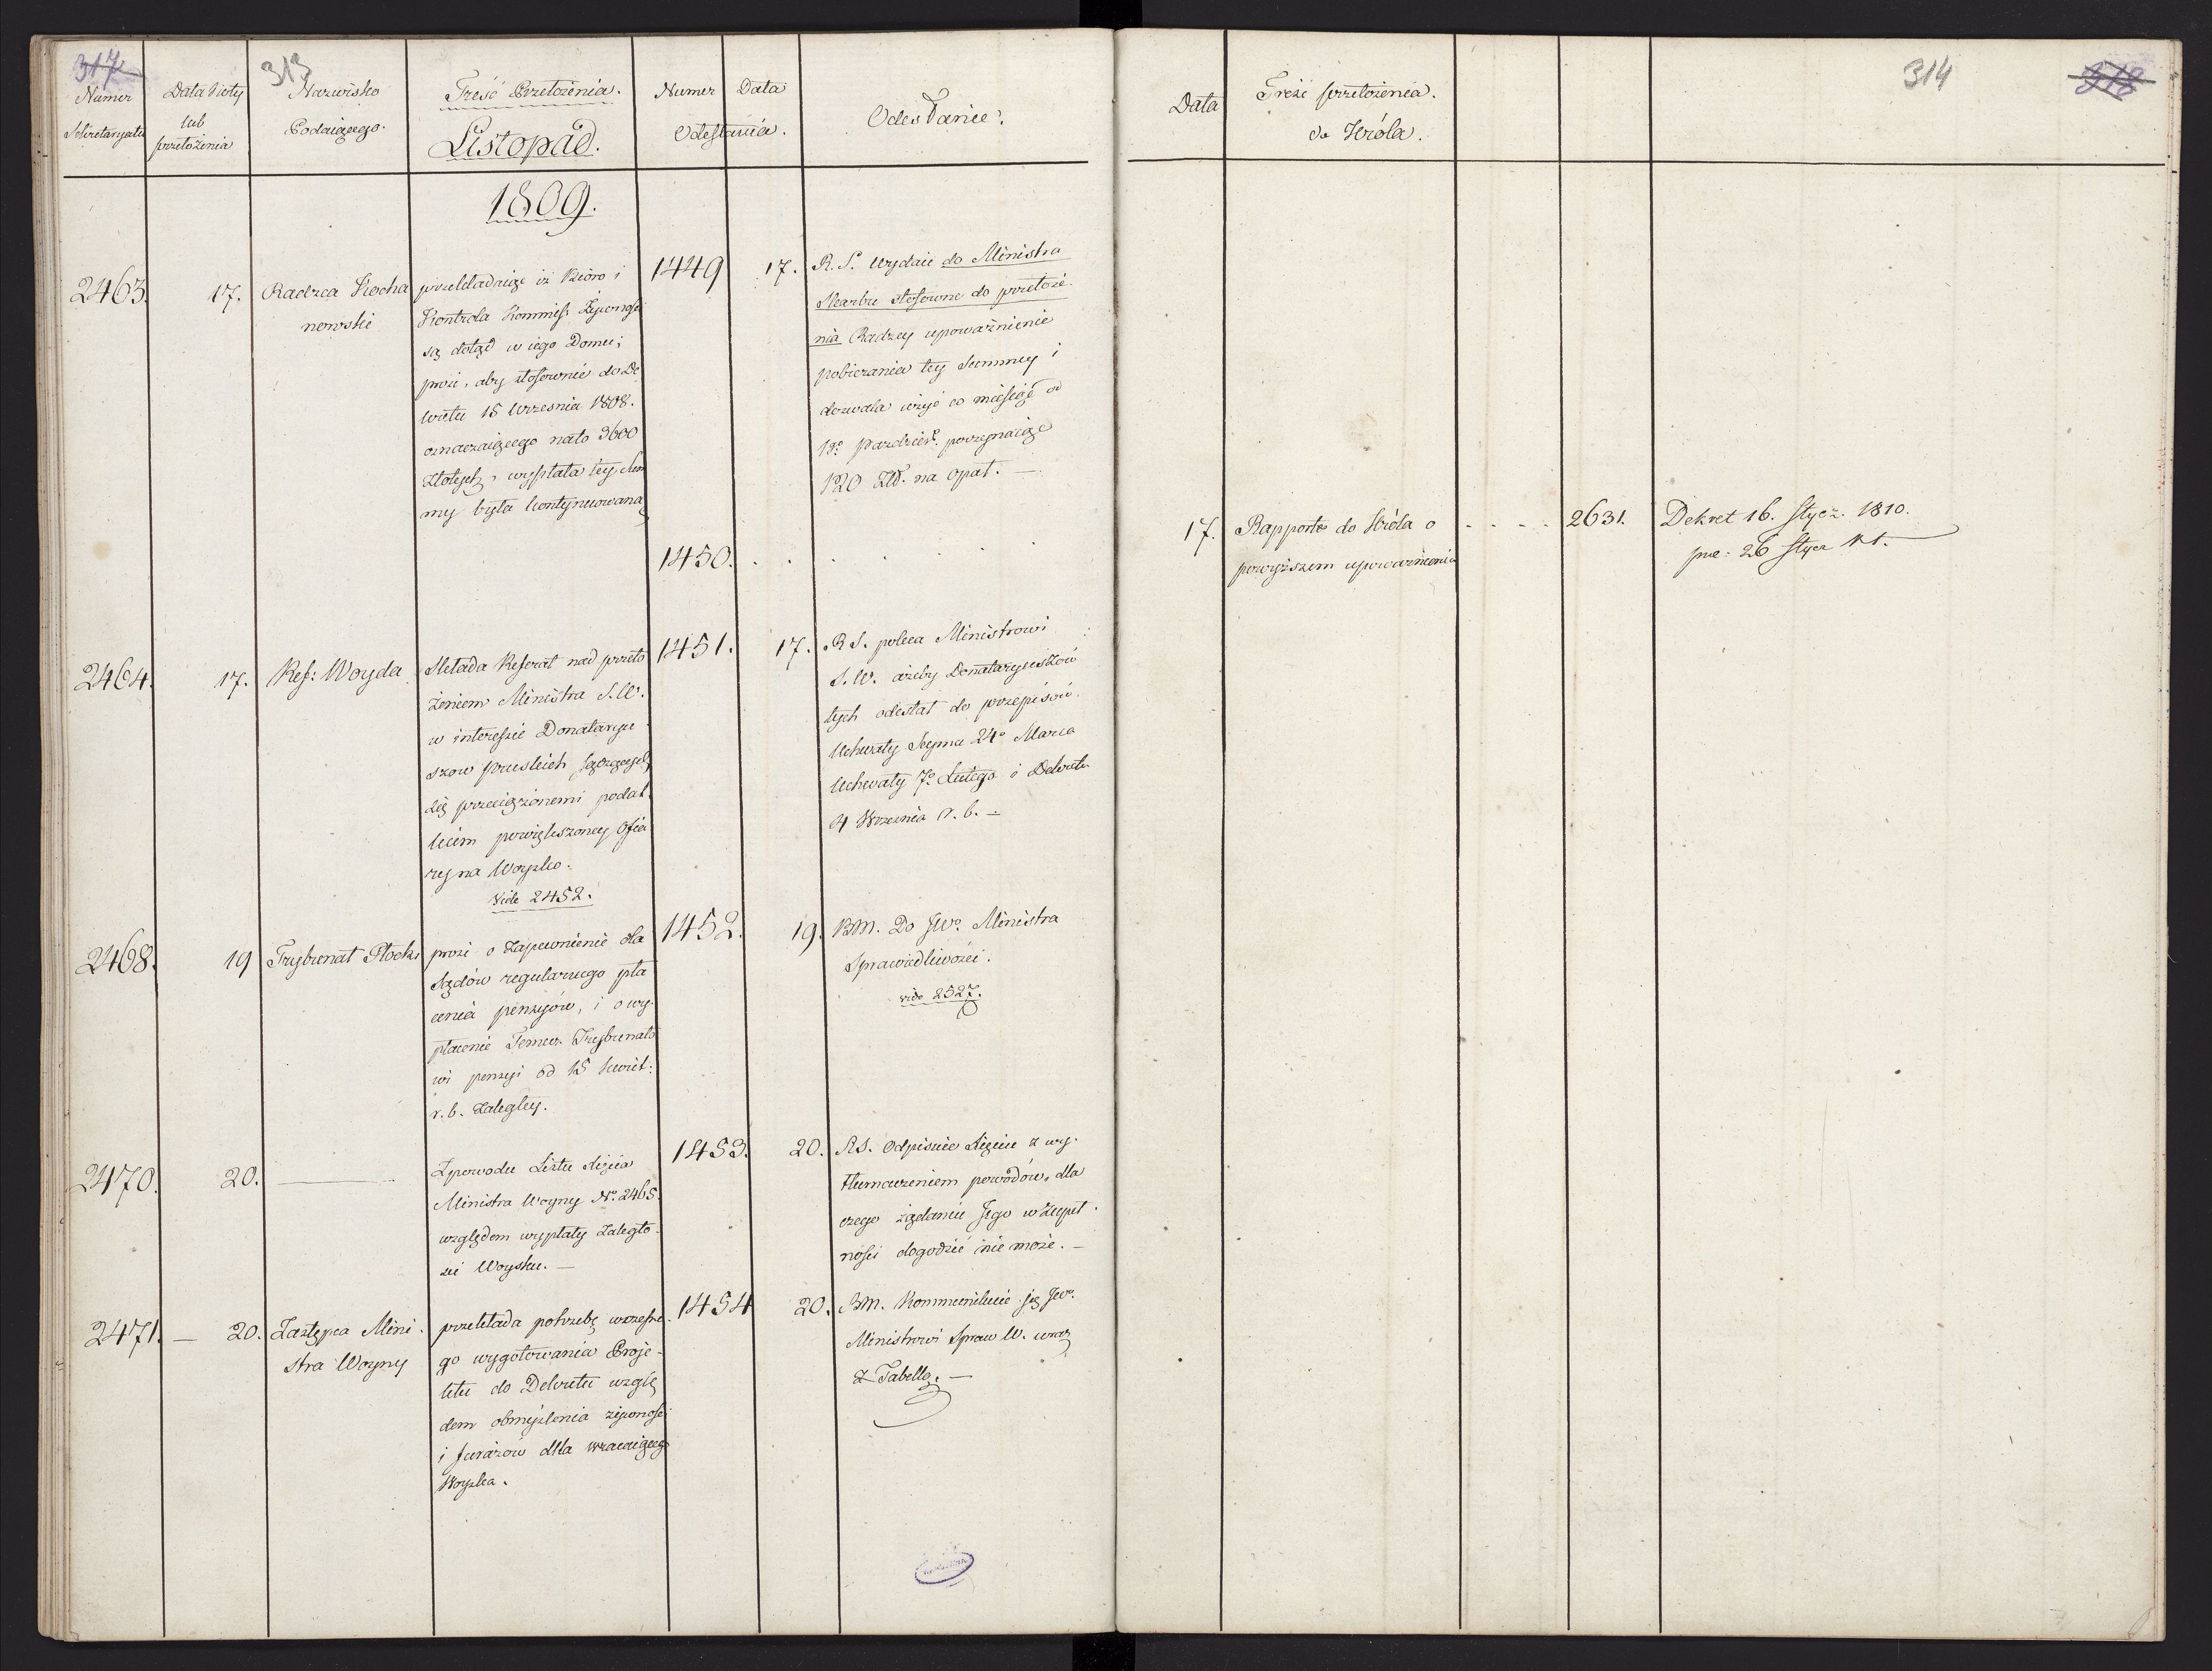 317
313
Numer
Sekretaryatu
Data Noty
lub
przełożenia
Nazwisko
Podaiącego.
Treść Przełożenia.
Listopad.
Numer
Data
Odesłania.
Odesłanie.
1809.
2463.
17.
Radzca Kocha
nowski
przekładaiąc iż Bióro i
Kontrola Kommiss: Żywnośi
są dotąd w iego Domu;
prosi, aby stosownie do De
kretu 15 Wrzesnia 1808.
oznaczaiącego nato 3600
Złotych, wypłata tey Sum
my była kontynuowana
1449
17.
R. S. wydaie do Ministra
Skarbu stosowne do przełoże
nia Radzcy upoważnienie
pobierania tey Summy i
dozwala użyć co miesiąc od
1go Pazdzier. poczynaiąc
120 Złł. na opał. —
1450.
2464.
17.
Ref: Woyda
Składa Referat nad przeło
żeniem Ministra S.W.
w interessie Donataryu
szow pruskich sączących
się przeciążonemi podat
kiem powiększoney Ofia
ry na Woysko.
Vide 2452.
1451.
17.
R S. poleca Ministrowi
S.W. ażeby Donataryuszów
tych odesłał do przepisów
Uchwały Seymu 24o Marca
Uchwały 7o Lutego i Dekretu
4 Wrzesnia r. b. —
2468.
19
Trybunał Płocki
prosi o zapewnienie dla
Sądów regularnego pła
cenia pensyów, i o wy
płacenie Temuż Trybunało
wi pensyi od 15 Kwiet:
r. b. zaległey.
1452.
19.
BM. Do JWo Ministra
Sprawiedliwości.
vide 2527.
2470.
20.
Zpowodu Listu Xięcia
Ministra Woyny No 2465.
względem wypłaty zaległo
ści Woysku. —
1453.
20.
RS. Odpisuie Xięciu z wy
tłumaczeniem powodów, dla
czego żądaniu Jego w zupeł
nośi dogodzić nie może. —
2471. —
20.
Zastępca Mini
stra Woyny
przekłada potrzebę wczesne
go wygotowania Proje
ktu do Dekretu wzglę
dem obmyślenia żywnośi
i furażów dla wracaiącego
Woyska.
1454
20.
BM. Kommunikuie ją JWo
Ministrowi Spraw W. wraz
z Tabellą. —
314
318
Data
Treść przełożenia.
do Króla.
17.
Rapport do Króla o
powyższem upoważnieniu
2631.
Dekret 16. Stycz. 1810.
pre: 26 Stycz r. t.